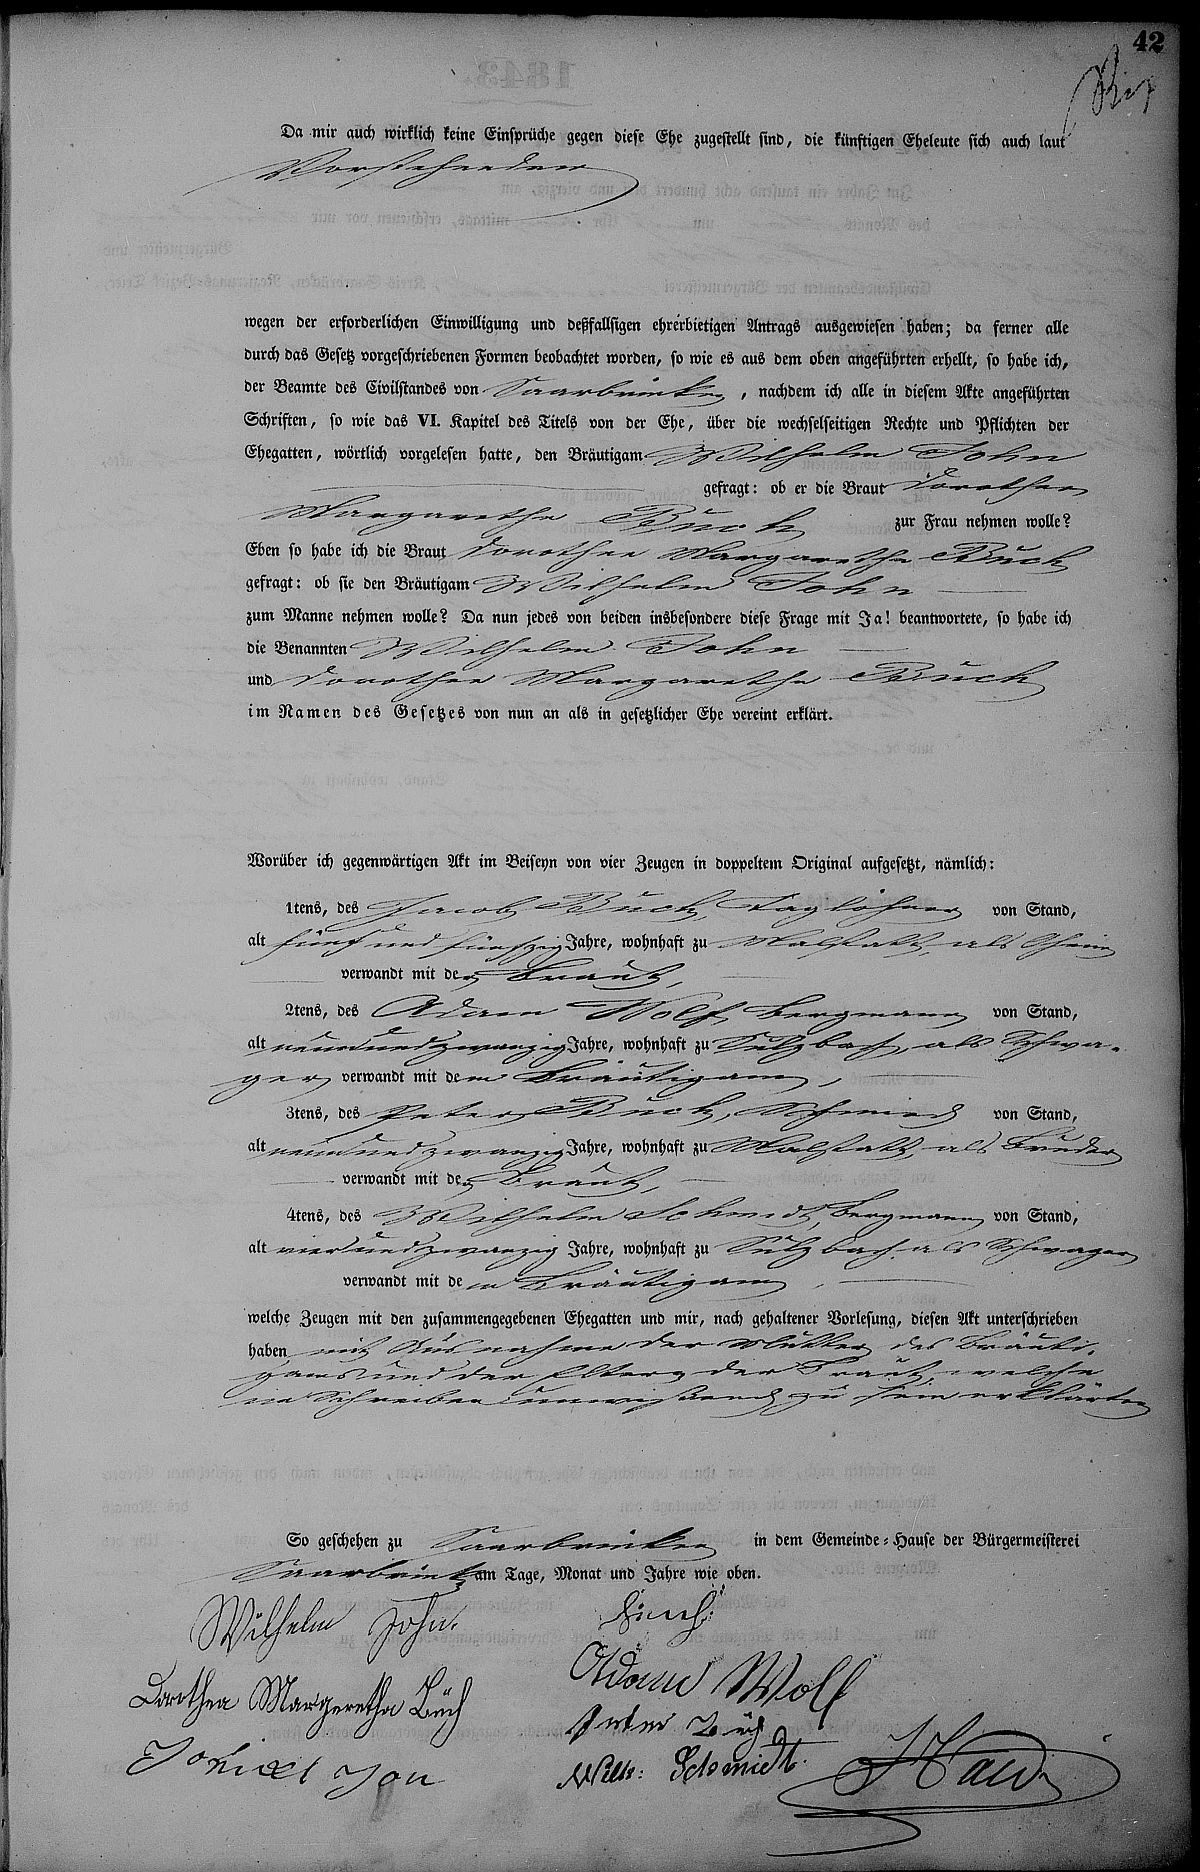 42
Da mir auch wirklich keine Einsprüche gegen diese Ehe zugestellt sind, die künftigen Eheleute sich auch laut
Vorstehenden
wegen der erforderlichen Einwilligung und deßfallsigen ehrerbietigen Antrags ausgewiesen haben; da ferner alle
durch das Gesetz vorgeschriebenen Formen beobachtet worden, so wie es aus dem oben angeführten erhellt, so habe ich,
der Beamte des Civilstandes von Saarbrücken, nachdem ich alle in diesem Akte angeführten
Schriften, so wie das VI. Kapitel des Titels von der Ehe, über die wechselseitigen Rechte und Pflichten der
Ehegatten, wörtlich vorgelesen hatte, den Bräutigam Wilhelm John
gefragt: ob er die Braut Dorothea
Margaretha Buch zur Frau nehmen wolle?
Eben so habe ich die Braut Dorothea Margaretha Buch
gefragt: ob sie den Bräutigam Wilhelm John
zum Manne nehmen wolle? Da nun jedes von beiden insbesondere diese Frage mit Ja! beantwortete, so habe ich
die Benannten Wilhelm John
und Dorothea Margaretha Buch
im Namen des Gesetzes von nun an als in gesetzlicher Ehe vereint erklärt.
Worüber ich gegenwärtigen Akt im Beiseyn von vier Zeugen in doppeltem Original aufgesetzt, nämlich:
1tens, des Jacob Buch, Taglöhner von Stand,
alt fünf und fünfzig Jahre, wohnhaft zu Malstatt, als Oheim
verwandt mit der Braut,
2tens, des Adam Wolf, Bergmann von Stand,
alt neunundzwanzig Jahre, wohnhaft zu Sulzbach, als Schwa-
ger verwandt mit dem Bräutigam,
3tens, des Peter Buch, Schmied von Stand,
alt neunundzwanzig Jahre, wohnhaft zu Malstatt, als Bruder
verwandt mit der Braut,
4tens, des Wilhelm Schmidt, Bergmann von Stand,
alt vierundzwanzig Jahre, wohnhaft zu Sulzbach, als Schwager
verwandt mit dem Bräutigam,
welche Zeugen mit den zusammengegebenen Ehegatten und mir, nach gehaltener Vorlesung, diesen Akt unterschrieben
haben mit Ausnahme der Mutter des Bräuti-
gams und der Eltern der Braut, welche
im Schreiben unwissend zu sein erklärten
So geschehen zu Saarbrücken in dem Gemeinde-Hause der Bürgermeisterei
Saarbrück am Tage, Monat und Jahre wie oben.
Wilhelm John.
Adam Wolf
Dorothea Margeretha Büch
Peter Büch
Wilh: Schmidt.